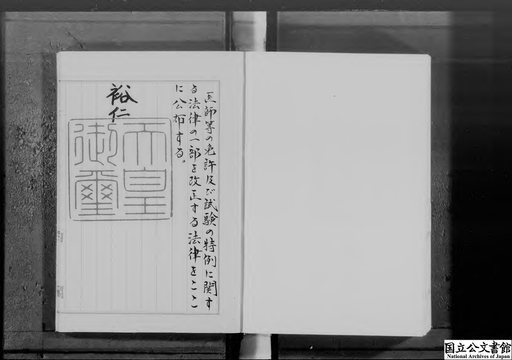 医師等の免許及び試験の特例に関す
る法律の一部を改正する法律をここ
に公布する。
裕仁
天皇
御璽
国立公文書館
National Archives of Japan